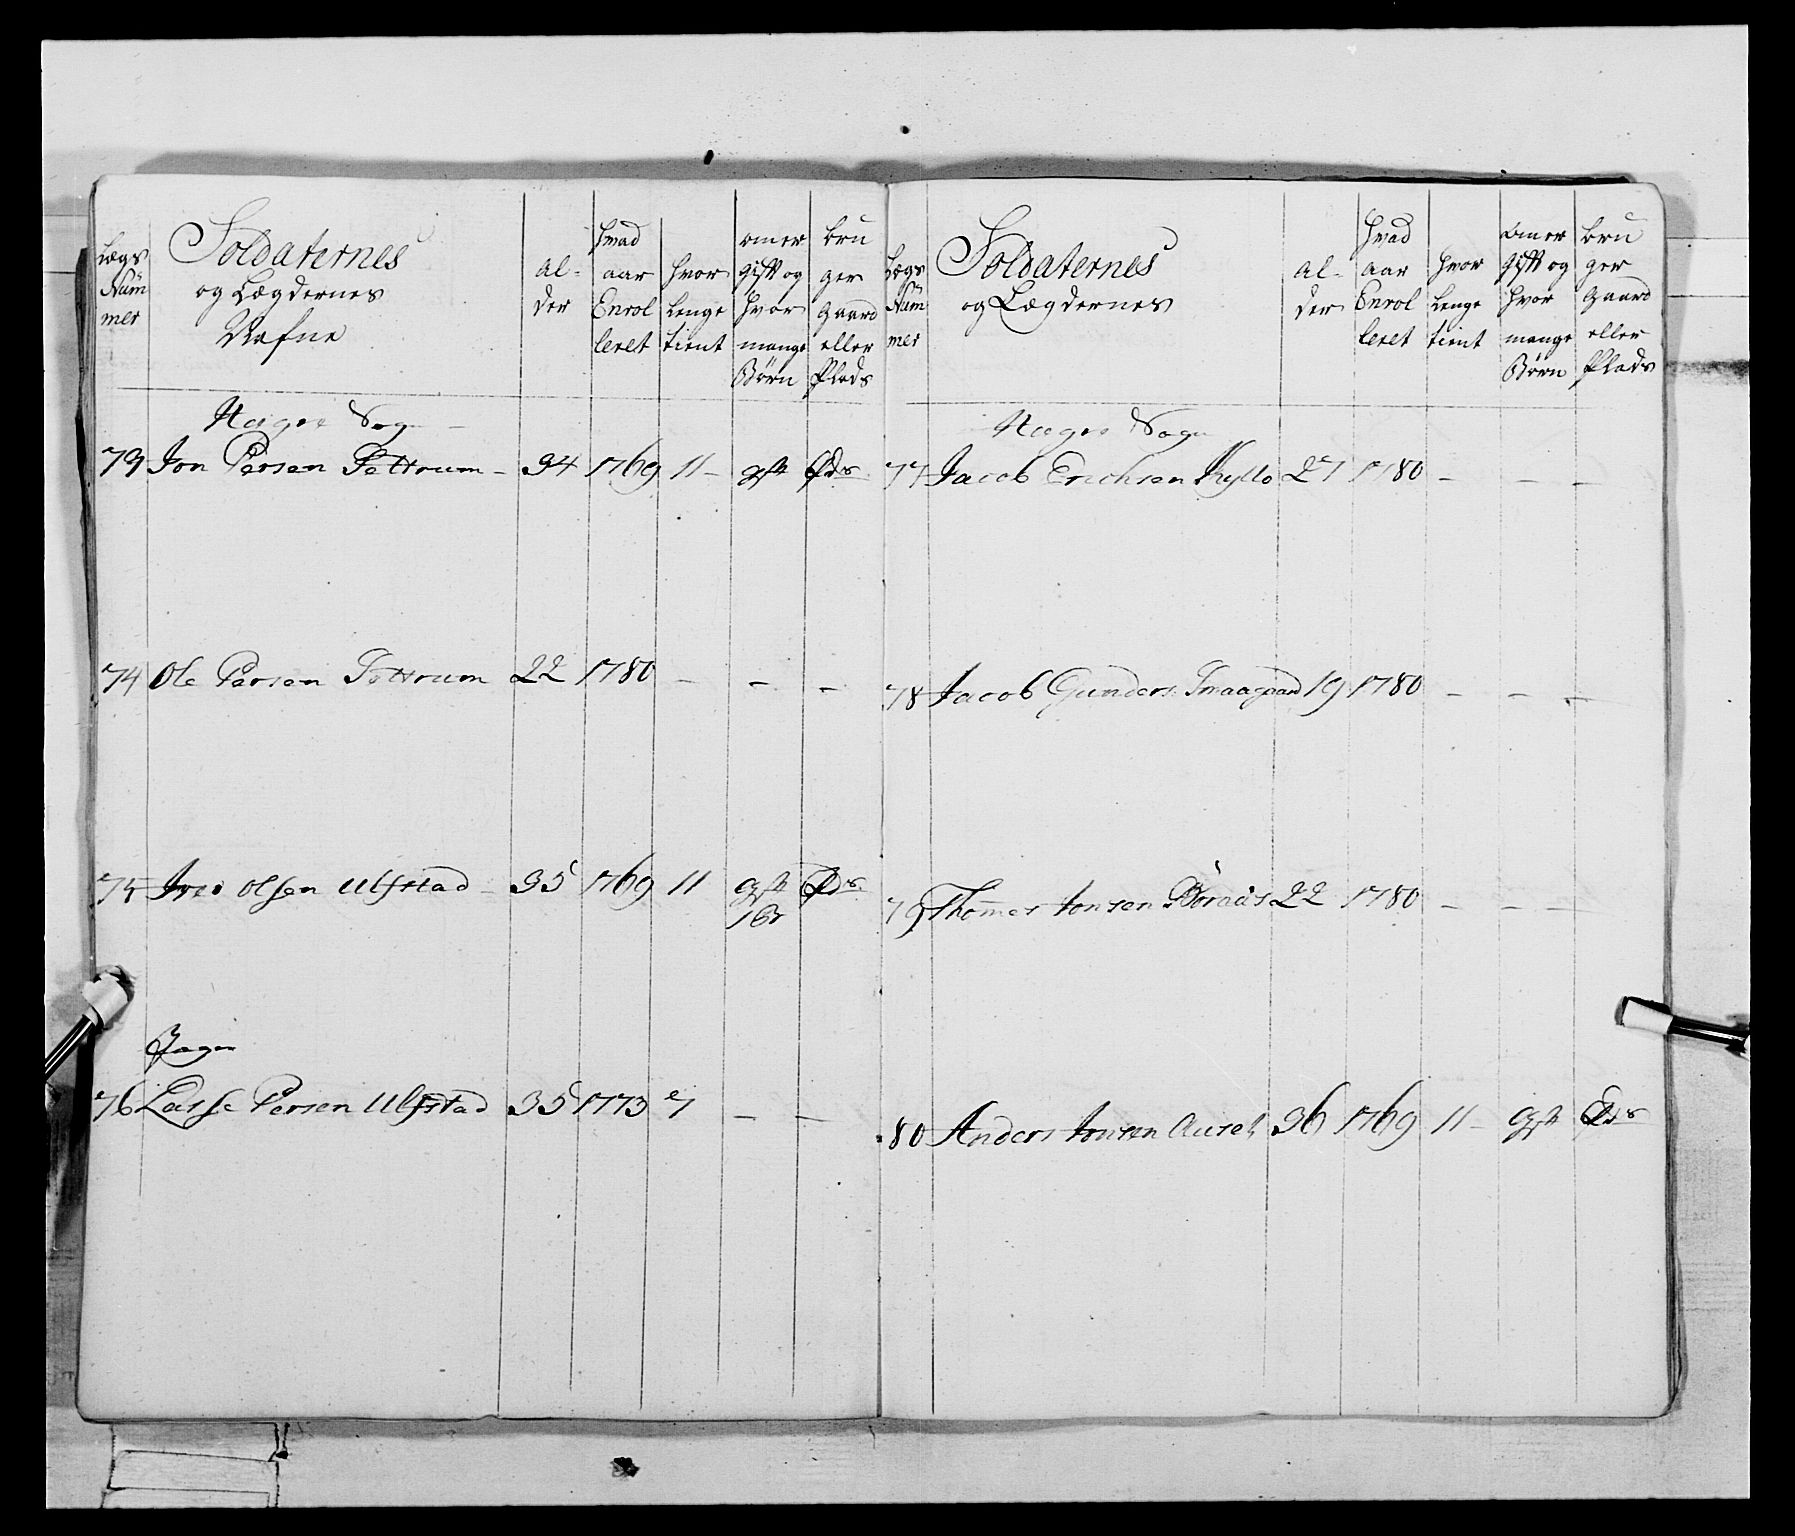 Lægs Num mer
Soldaternes og Lægdernes Nafne
Al- der
hvad aar Enrol leret
hvor lenge tient
om er gift og hvor mange Børn
bru ger gaard eller Plads
Hægre Sogn
73 Jon Persen Fettrum - 34 1769 11 - gft Pds
74 Ole Persen Fettrum 22 1780 - - -
75 Iver Olsen Ulfstad - 35 1769 11 gft Pds
1 br
Jager
76 Lasse Persen Ulfstad 35 1773 7 - -
Lægs Num mer
Soldaternes og Lægdernes
Al- der
hvad aar Enrol leret
hvor lenge tient
om er gift og hvor mange Børn
bru ger gaard eller Plads
Hægre Sogn
77 Jacob Erichsen Kyllo 27 1780 - - -
78 Jacob Gunders: Smaagaard 19 1780 - - -
79 Thomes Jonsen Boraas 22 1780 - - -
80 Anders Jonsen 36 1769 11 - gft Pds